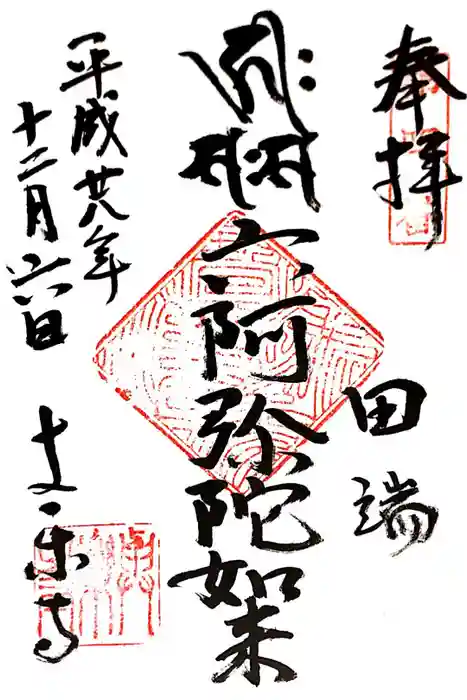 奉拝
田端
六阿弥陀如来
平成廿八年
十二月六日
与楽寺